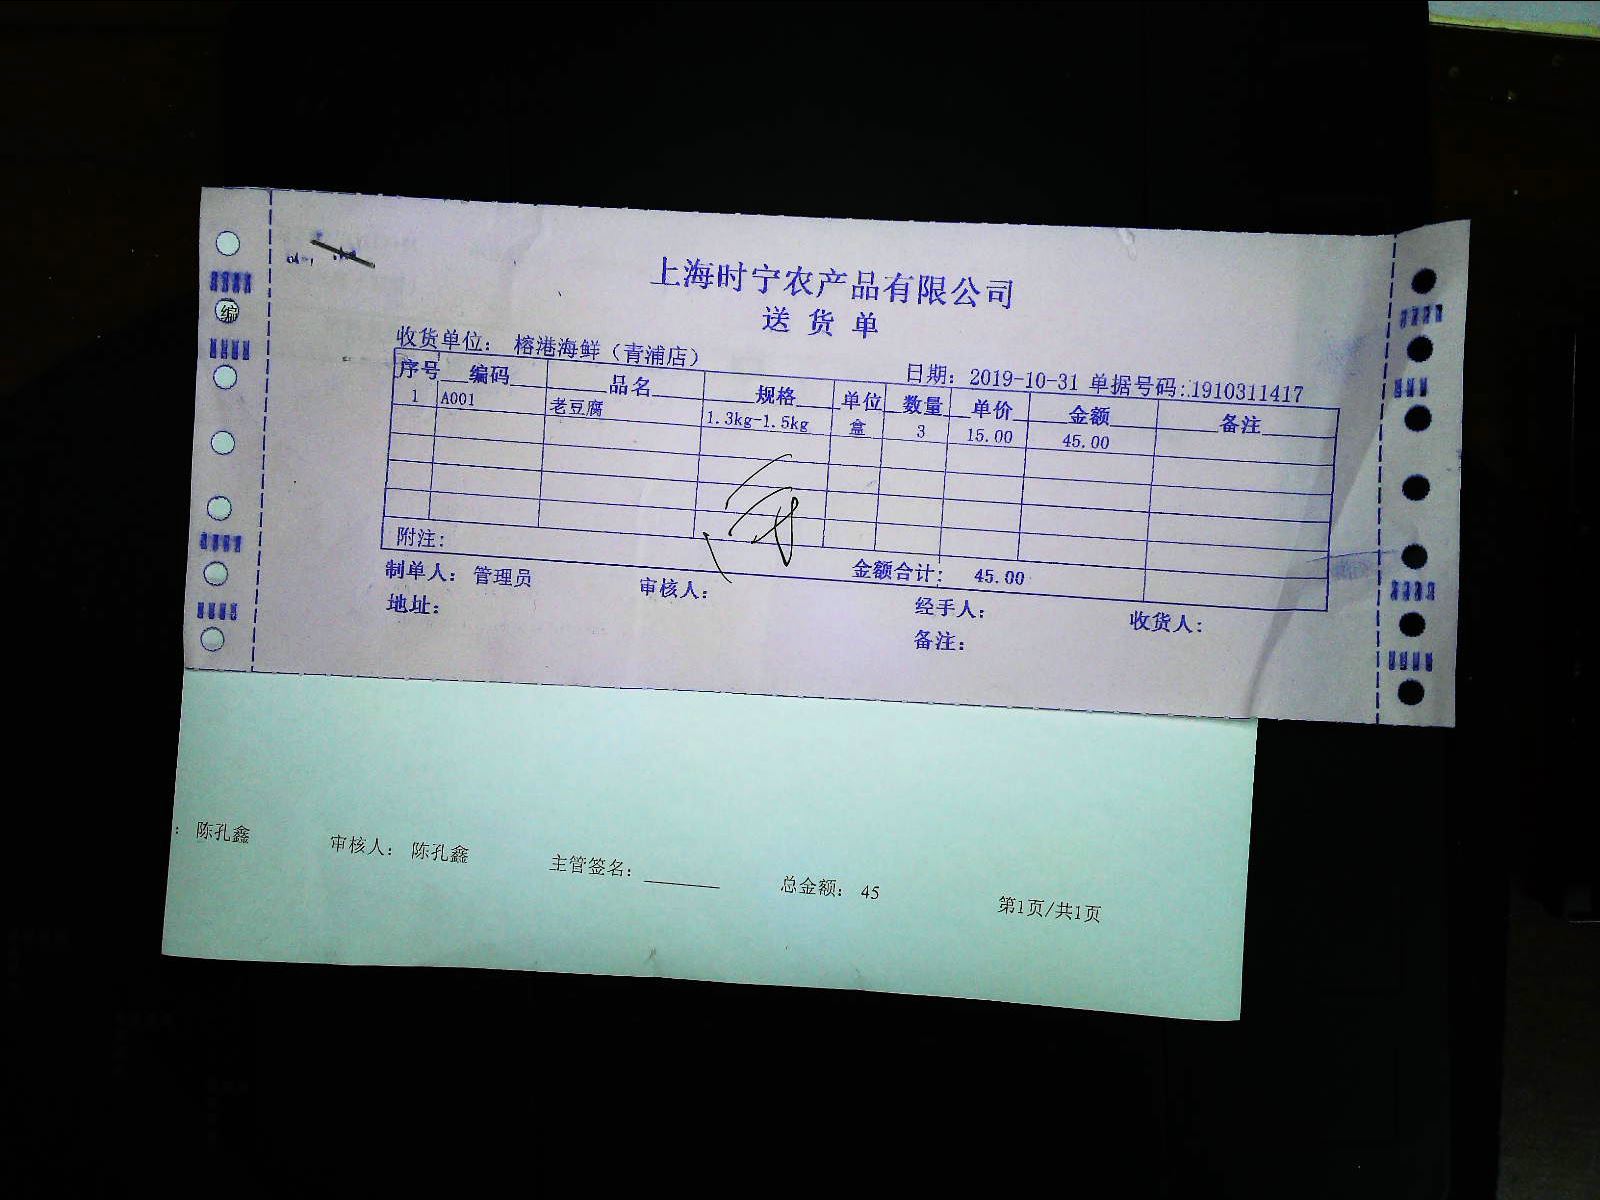 上海时宁农产品有限公司
送货单
收货单位： 榕港海鲜（青浦店） 日期：2019-10-31 单据号码：1910311417
序号 编码 品名 规格 单位 数量 单价 金额 备注
1 A001 老豆腐 1.3kg-1.5kg 盒 3 15.00 45.00
附注：
金额合计： 45.00
制单人： 管理员 审核人： 经手人： 收货人：
地址： 备注：
编
： 陈孔鑫 审核人： 陈孔鑫 主管签名：________ 总金额： 45 第1页/共1页